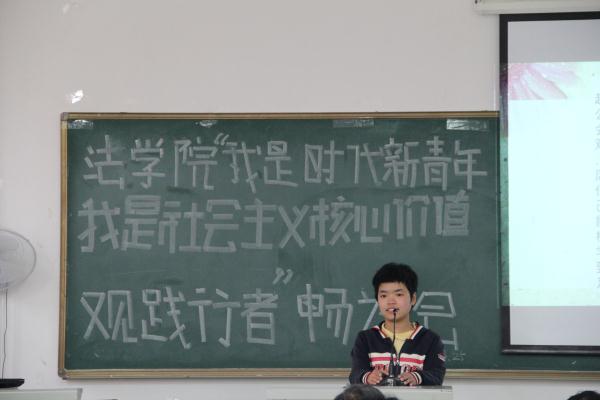 法学院“我是时代新青年
我是社会主义核心价值
观践行者”畅 会